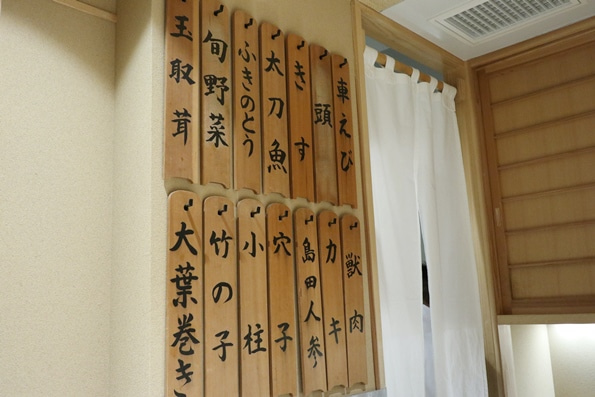 車えび
頭
きす
太刀魚
ふきのとう
旬野菜
玉取茸
獣肉
カキ
島田人参
穴子
小柱
竹の子
大葉巻き